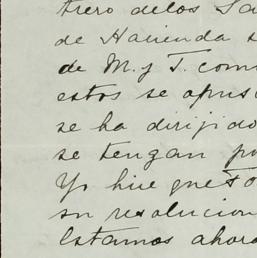 trero de los Sa
de Hacienda s
de M. y T. com
estos se apus
se ha dirijido
se tengan po
Yo hice que To
su resolucion
Estamos ahora